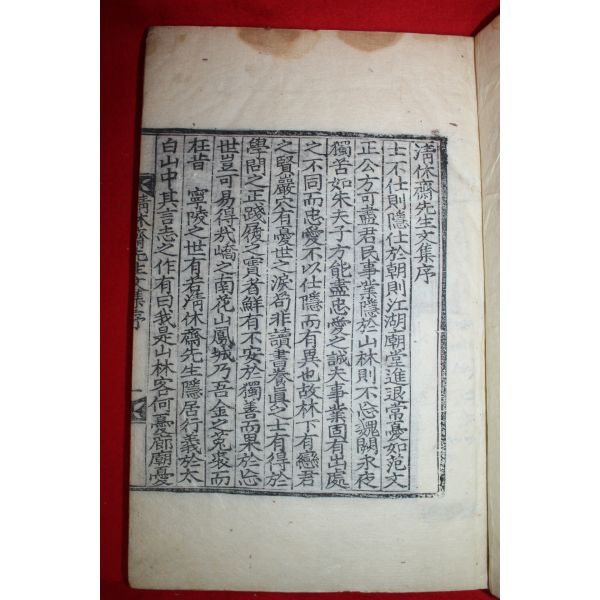 淸休齋先生文集序
士不仕則隱仕於朝則江湖廟堂進退當憂如范文
正公方可盡君民事業隱於山林則不忘魏闕永夜
獨苦如朱夫子方能盡忠愛之誠夫事業固有出處
之不同而忠愛不以仕隱而有異也故林下有戀君
之賢巖穴有憂世之淚苟非讀書養眞之士有得於
學問之正踐履之實者鮮有不安於獨善而果於忘
世豈可易得哉嶠之南花山鳳城乃吾金之菟裘而
在昔 寧陵之世有若淸休齋先生隱居行義於太
白山中其言志之作有曰我是山林客何憂廊廟憂
淸休齋先生文集序 一